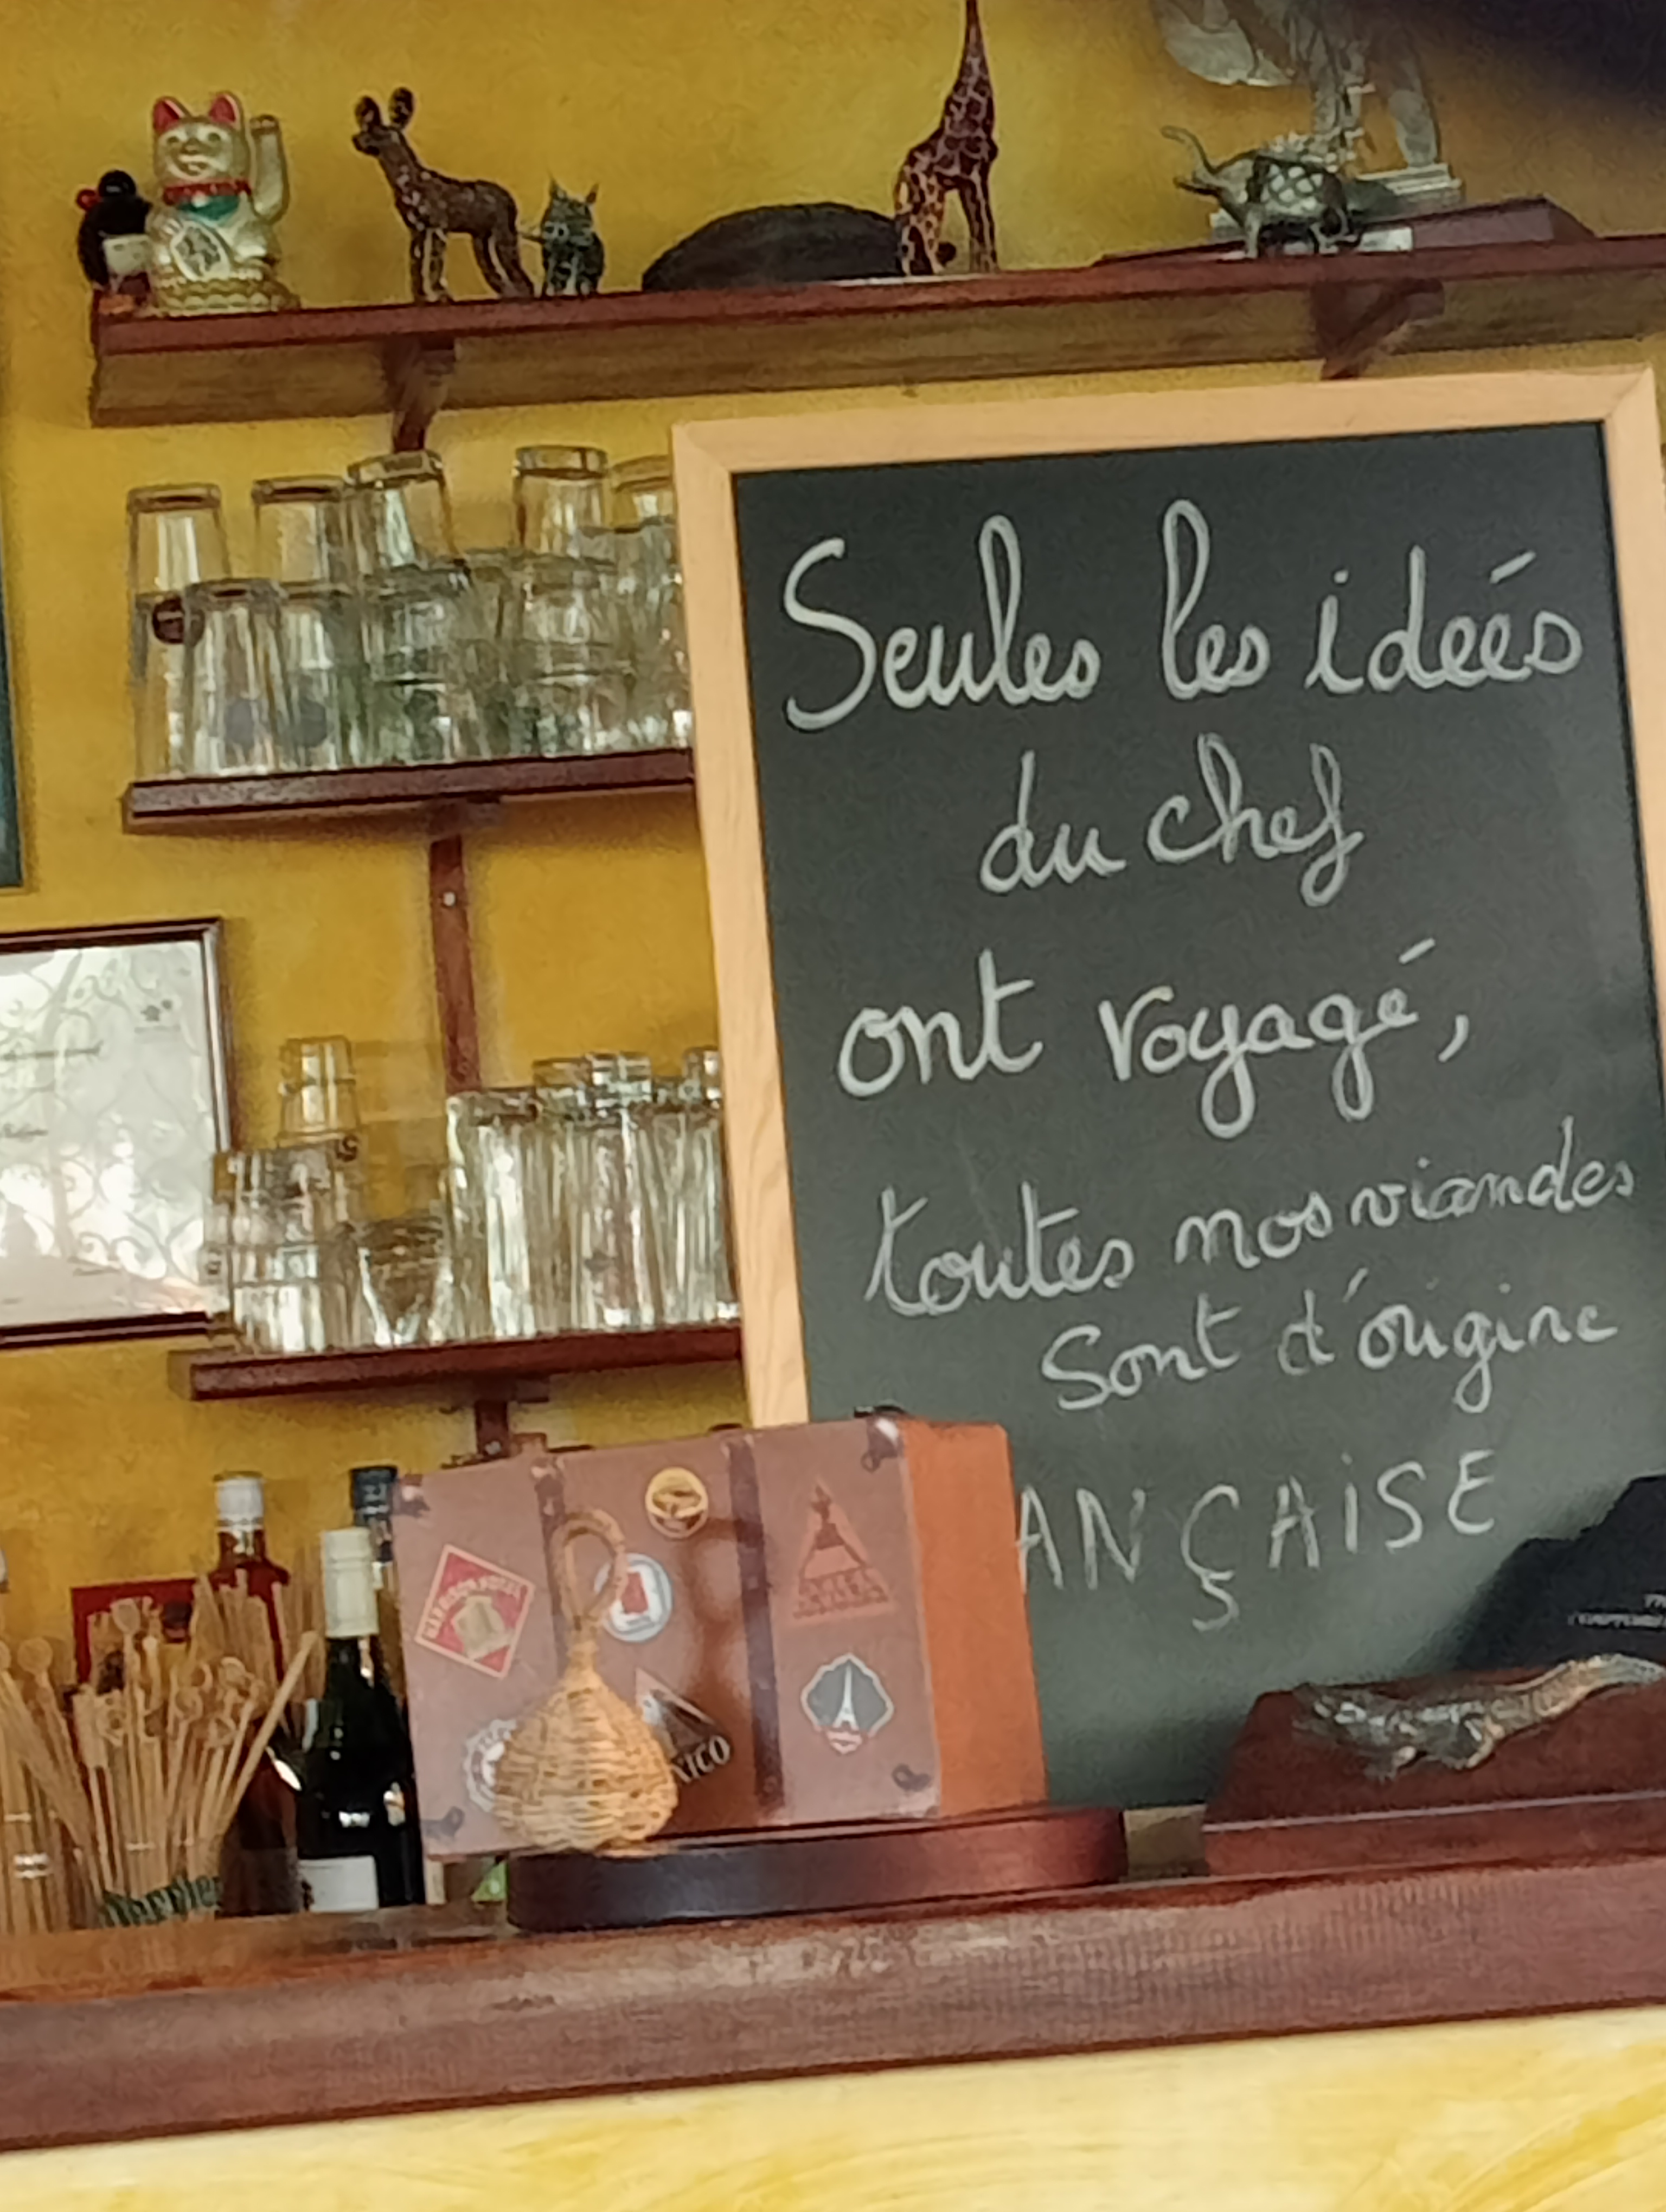 Seules les ideés
du chef
ont voyagé,
toutes nos viandes
Sont d'origine
ANÇAISE
NICO